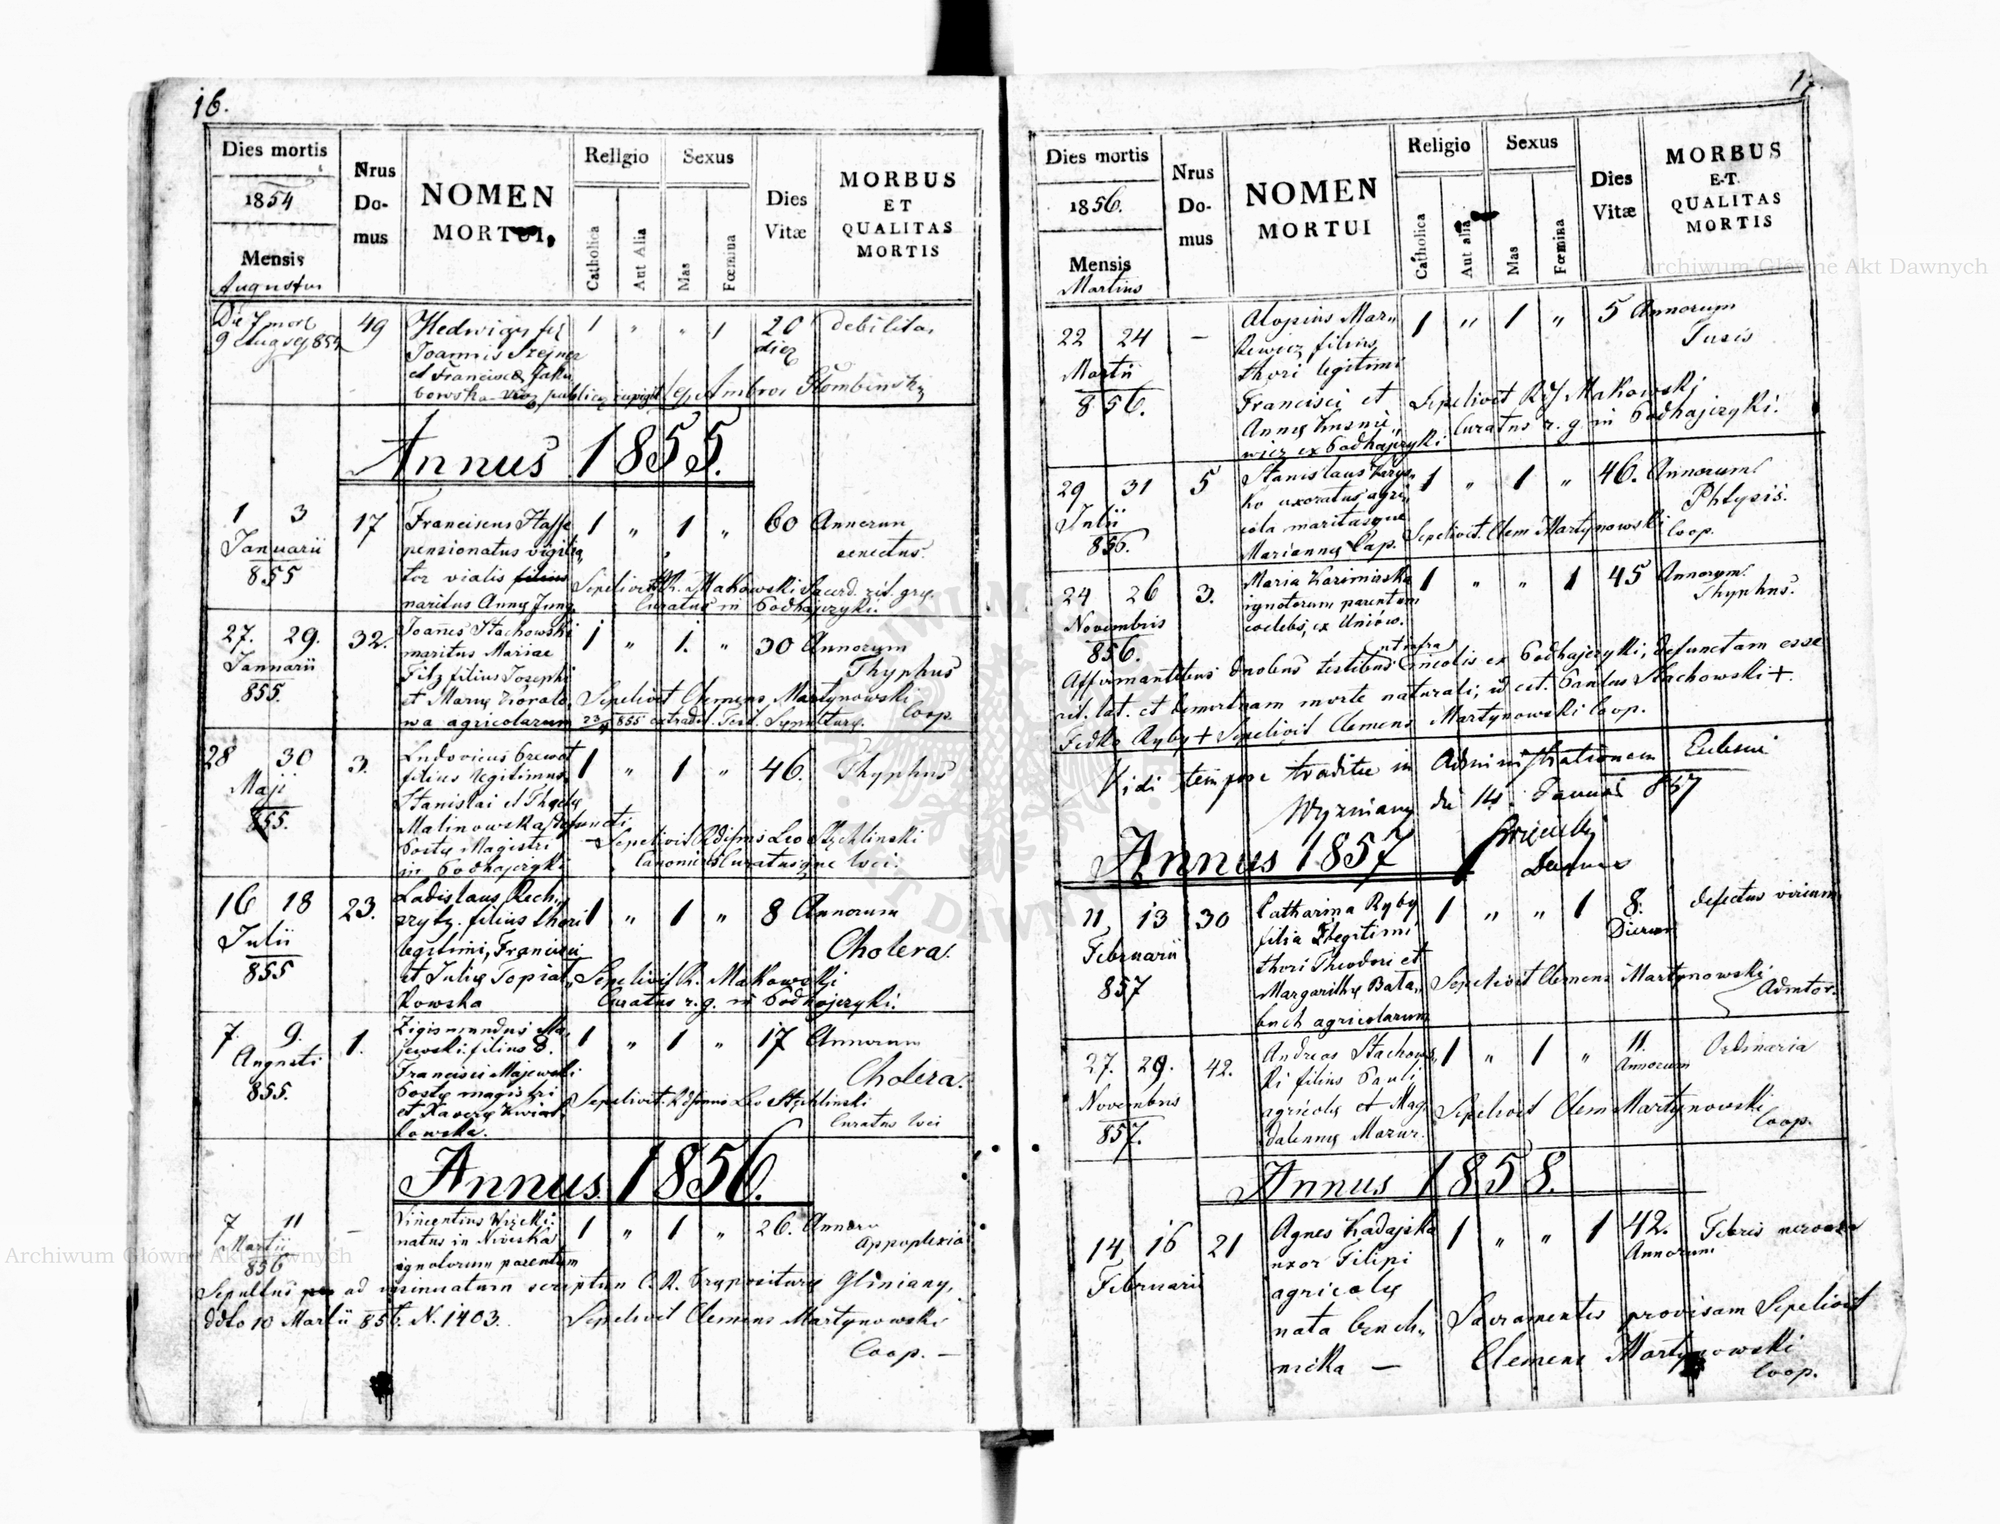 16.
Dies mortis
1854
Mensis
Augustus
Nrus
Do-
mus
NOMEN
MORTUI
Religio
Catholica
Aut Alia
Sexus
Mas
Fœmina
Dies
Vitæ
MORBUS
ET
QUALITAS
MORTIS
49
Hedwigis
Joannis
et Francisca
1 " " 1
20
debilitas
Annus 1855.
1 3
Januarii
855
17
Franciscus
pensionatus
tor vialis filius
maritus Annę Jung
1 " 1 "
60 Annorum
senectus.
Sepelivit R. Makowski Sacerd. rit. grę.
Curatus in Podhajczyki.
27. 29.
Januarii
855.
32.
Joannes Stachowski
maritus Mariae
Filz filius Josephi
et Marię
wa agricolarum
1 " 1. "
30 Annorum
Thyphus
Sepelivit Clemens Martynowski
Coop.
855 extradit. Test. Sepulturę.
28 30
Maji
855.
3.
Ludovicus
filius legitimus
Stanislai et
Malinowska defuncti
Magistri
in Podhajczyki
1 " 1 "
46.
Thyphus
Sepelivit Leo Stychlinski
Canonicus Curatusque loci.
16 18
Julii
855
23.
Ladislaus
filius thori
legitimi, Francisci
et Julię
kowska
1 " 1 "
8 Annorum
Cholera.
Sepelivit R. Makowski
Curatus r. g. in Podhajczyki.
7. 9.
Augusti
855.
1.
Zigismundus Ma-
jewski filius
Francisci Majewski
magistri
et Xaverę Kwiat-
kowska.
1 " 1 "
17 Annorum
Cholera.
Sepelivit Leo Stychlinski
Curatus loci
Annus 1856.
7 11
Martii
856
—
Vincentius
natus in
ignotorum parentum
1 " 1 "
26. Annoru
Appoplexia
Sepultus ad insinuatum scriptum C. R. Gliniany,
ddto 10 Martii 856. N. 1403.
Sepelivit Clemens Martynowski
Coop. —
17.
Dies mortis
1856.
Mensis
Martius
Nrus
Do-
mus
NOMEN
MORTUI
Religio
Catholica
Aut alia
Sexus
Mas
Fœmina
Dies
Vitæ
MORBUS
ET
QUALITAS
MORTIS
22 24
Martii
856.
—
Aloysius Mar"
kewicz filius
thori legitimi
Francisci et
Annę
wicz ex Podhajczyki
1 " 1 "
5 Annorum
Tusis
Sepelivit Makowski
Curatus r. g. in Podhajczyki.
29 31
Julii
856.
5
Stanislaus
ko uxoratus agri"
cola maritusque
Mariannę Cap.
1 " 1 "
46. Annorum
Phtysis.
Sepelivit Clem Martynowski Coop.
24 26
Novembris
856.
3.
Maria Kazimirska
ignotorum parentum
coelebs, ex Uniów.
1 " " 1
45 Annorum
Thyphus.
ut infra
Affirmantibus duobus testibus incolis ex Podhajczyki, defunctam esse
rit. lat. et demortuam morte naturali, id est. Paulus Stachowski +
Fedko Ryby + Sepelivit Clemens Martynowski Coop.
Vidi tempore traditae in Administrationem Eclesiae
Wyzniany die 14. Januar 857
Annus 1857
11 13
Februarii
857
30
Catharina Ryby
filia legitimi
thori Theodori et
Margarithę Bata-
buch agricolarum
1 " " 1
8.
Dierum
defectus virium
Sepelivit Clemens Martynowski
Admtor.
27. 29.
Novembris
857.
42.
Andreas Stachows-
ki filius Pauli
agricolę et Mag
dalennę Mazur.
1 " 1 "
11.
Annorum
Ordinaria
Sepelivit Clem Martynowski
Coop.
Annus 1858.
14 16
Februarii
21
Agnes Zadajska
uxor Filipi
agricolę
nata
nicka —
1 " " 1
42.
Annorum
Febris nervosa
Sacramentis provisam Sepelivit
Clemens Martynowski
Coop.
Archiwum Główne Akt Dawnych
Archiwum Główne Akt Dawnych